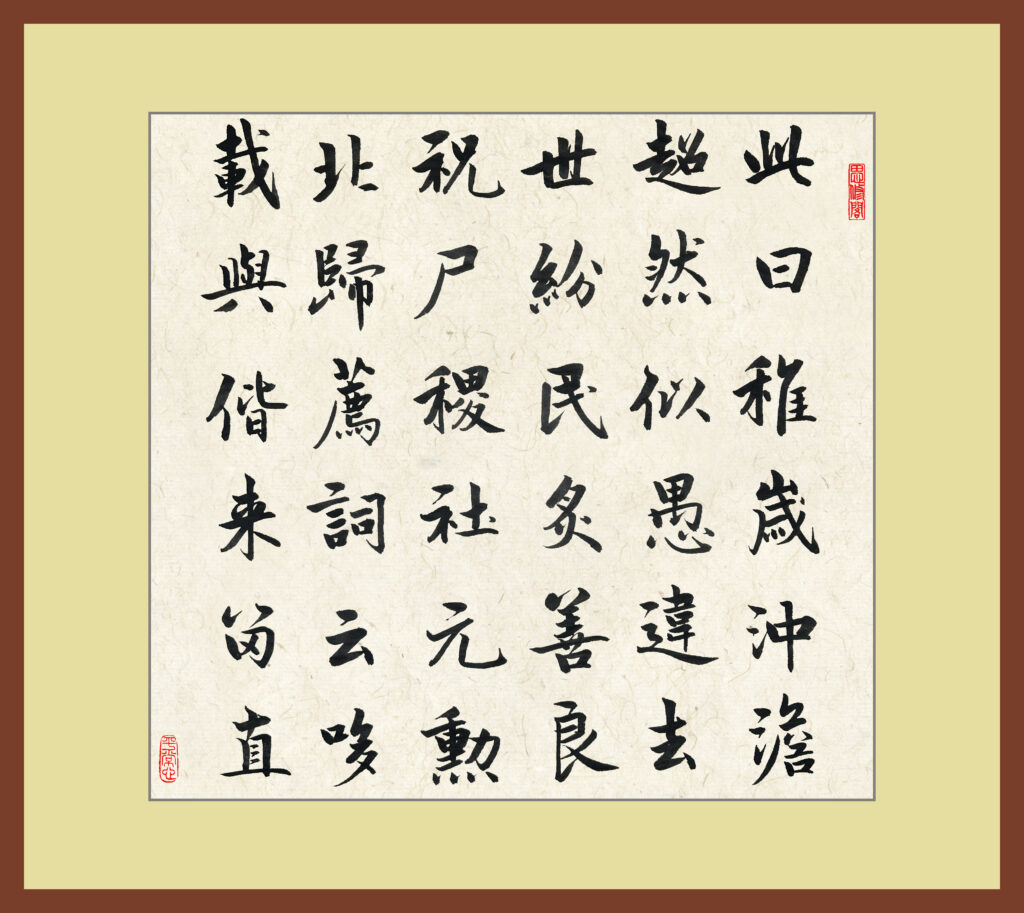 思修閣
此曰稚歲沖澹
超然似愚違去
世紛民炙善良
祝尸稷社元勳
北歸薦詞云哆
載與偕来留直
平常心